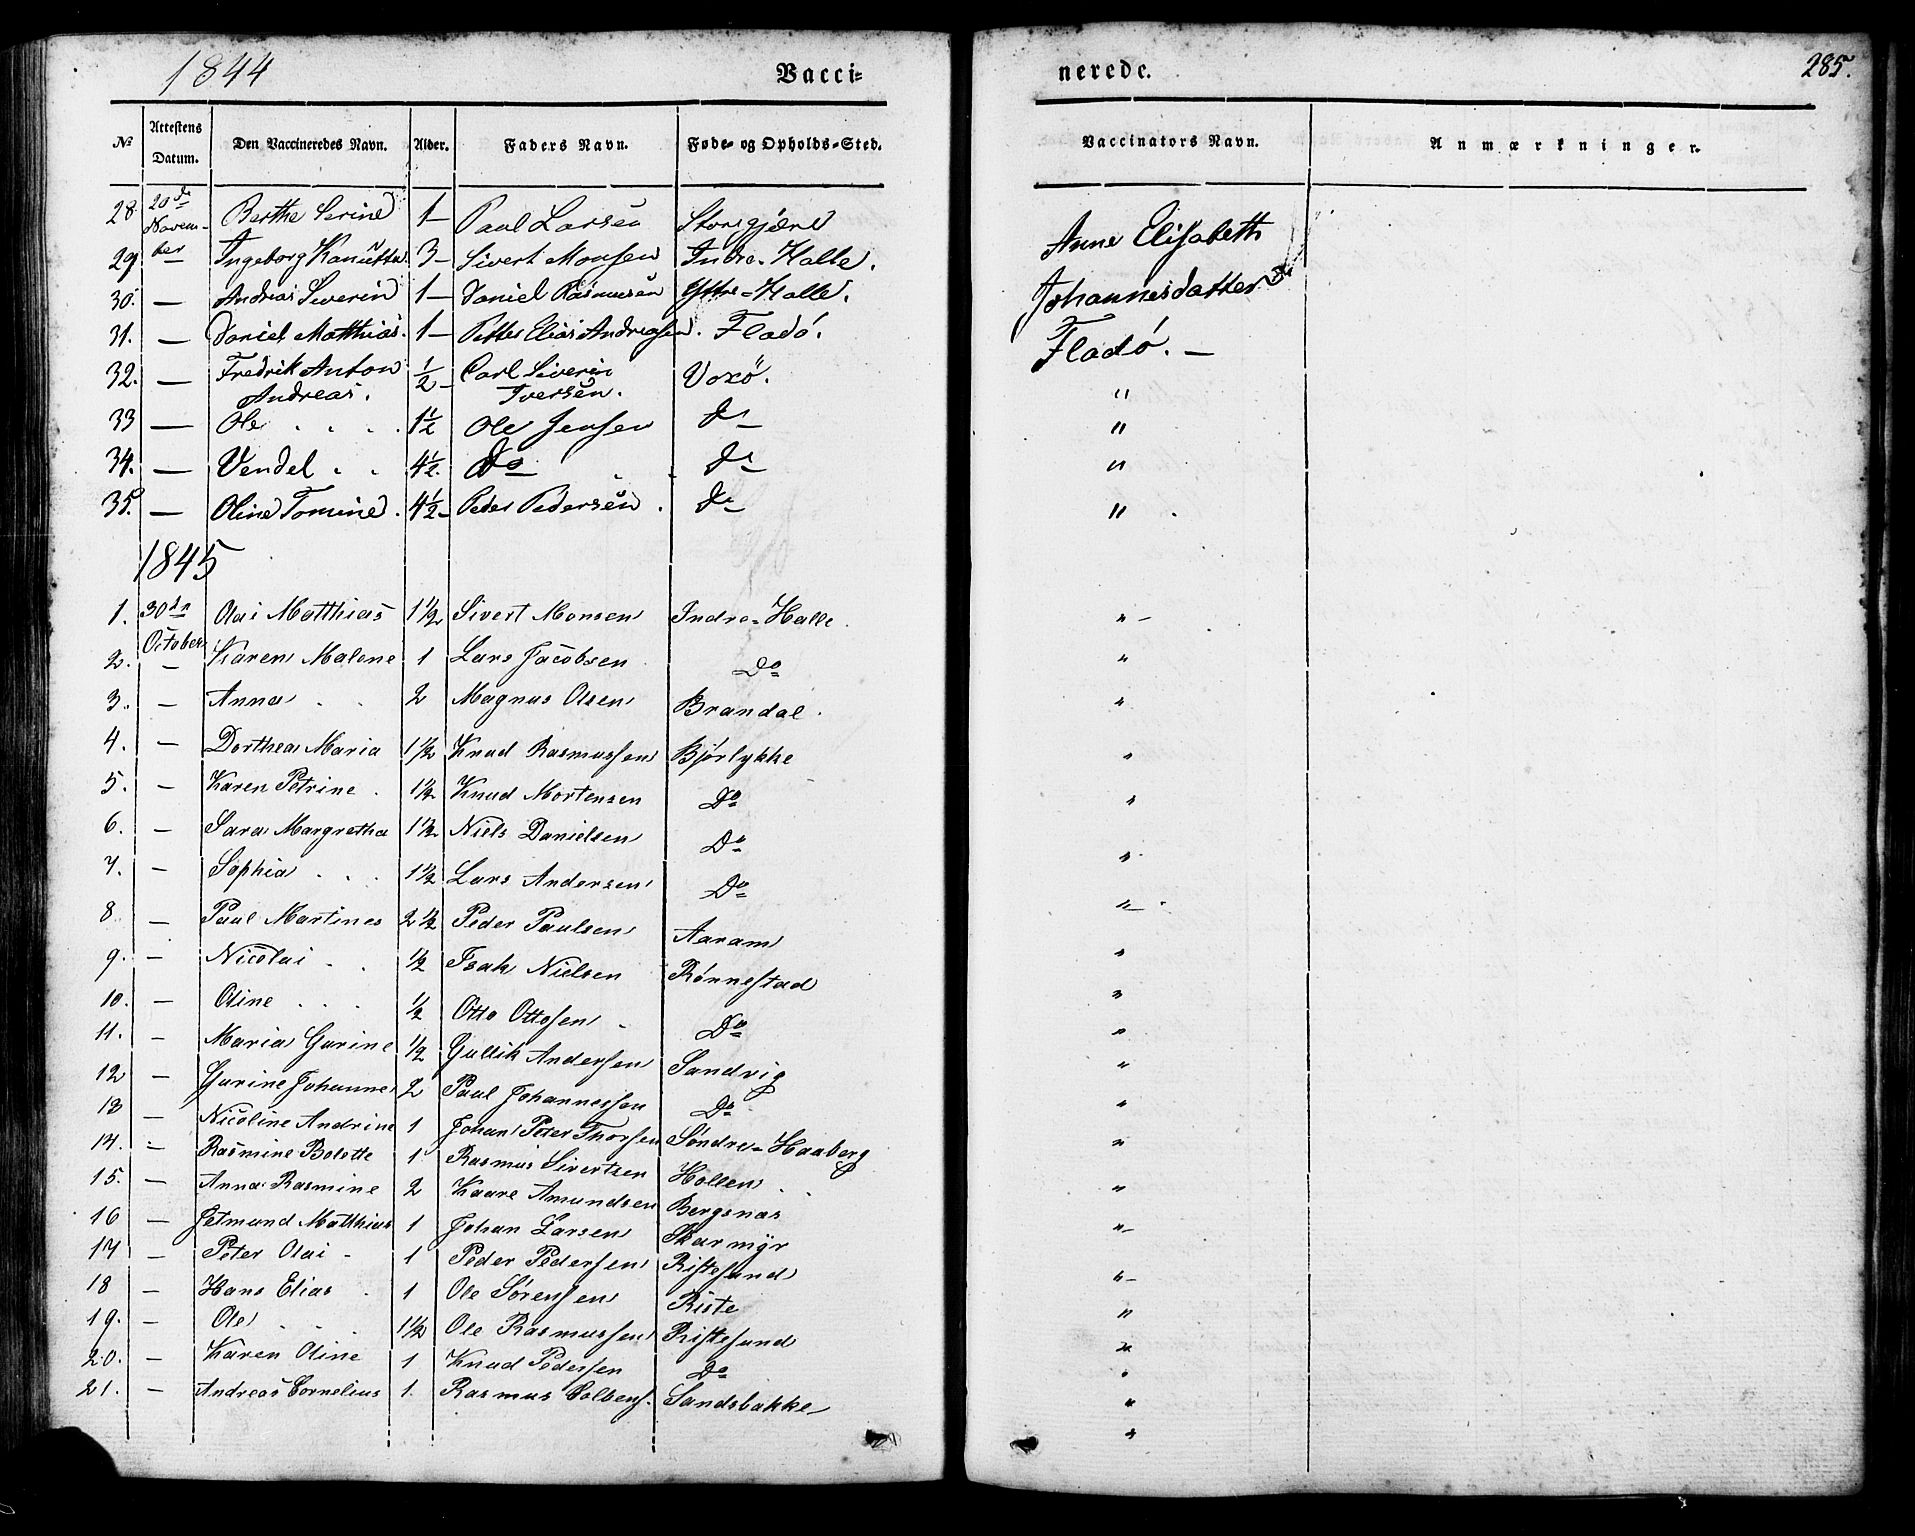 1844 Vacci= nerede. 285.
№ Attestens Datum. Den Vaccineredes Navn. Alder. Faders Navn. Føde- og Opholds-Sted. Vaccinators Navn. Anmærkninger.
28 20de Novem- Berthe Serine 1 — Paul Larsen Storegjære Anne Elisabeth
29 ber Ingeborg Kanutta 3 — Sivert Monsen Indre-Halle. Johannesdatter
30. — Andreas Severin 1 — Daniel Rasmusen Yttre-Halle. Fladö. —
31. — Daniel Matthias. 1 — Petter Elias Andreasen. Fladö.
32. — Fredrik Anton ½ — Carl Siverin Voxö. "
Andreas. Iversen.
33 — Ole . . . . 1½ Ole Jensen Do "
34. — Vendel . . 4½ Do Do "
35. — Oline Tomine. 4½ — Peder Pedersen. Do "
1845
1. 30de Olai Matthias 1½ Sivert Monsen Indre-Halle. " —
October
2. — Karen Malene 1 Lars Jacobsen Do "
3. — Anna . . 2 Magnus Olsen Brandal. "
4. — Dorthea Maria 1½ Knud Rasmussen Bjørlykke "
5. — Karen Petrine . 1½ Knud Mortensen Do "
6. — Sara Margretha 1½ Niels Danielsen Do "
7. — Sophia . . . 1½ Lars Andersen Do " —
8. — Paul Martines 2½ Peder Paulsen Aaram "
9. — Nicolai . . ½ Isak Nielsen Rønnestad "
10. — Oline . . . ½ Otto Ottosen . Do "
11. — Maria Gurine ½ Gullik Andersen Sandvig "
12 — Gurine Johanne 2 Paul Johannessen Do "
13 — Nicoline Andrine 1 Johan Peter Thorsen Søndre-Haaberg "
14. — Rasmine Bolette 1 Rasmus Sivertsen Hollen . . "
15. — Anna Rasmine 2 Kaare Amundsen Bergsnas " —
16 — Jetmund Matthias 1 Johan Larsen Skarmyr " —
17 — Peter Olai - 1 Peder Pedersen Ristesund "
18 — Hans Elias . 1 Ole Sørensen Riste "
19. — Ole . . . 1½ Ole Rasmussen Ristesund "
20. — Karen Oline 1 Knud Pedersen Do "
21. — Andreas Cornelius 1. Rasmus Colbens. Sandsbakke "